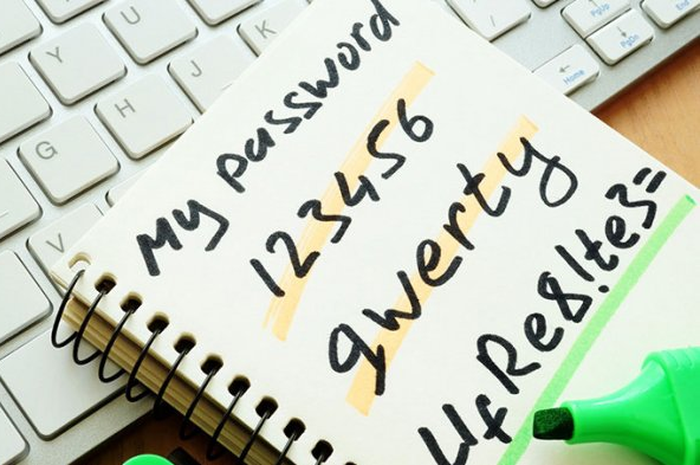 My password
123456
qwerty
UfRe8!te3=
Y
U
G
H
J
K
V
PgUp
PgDn
Home
End